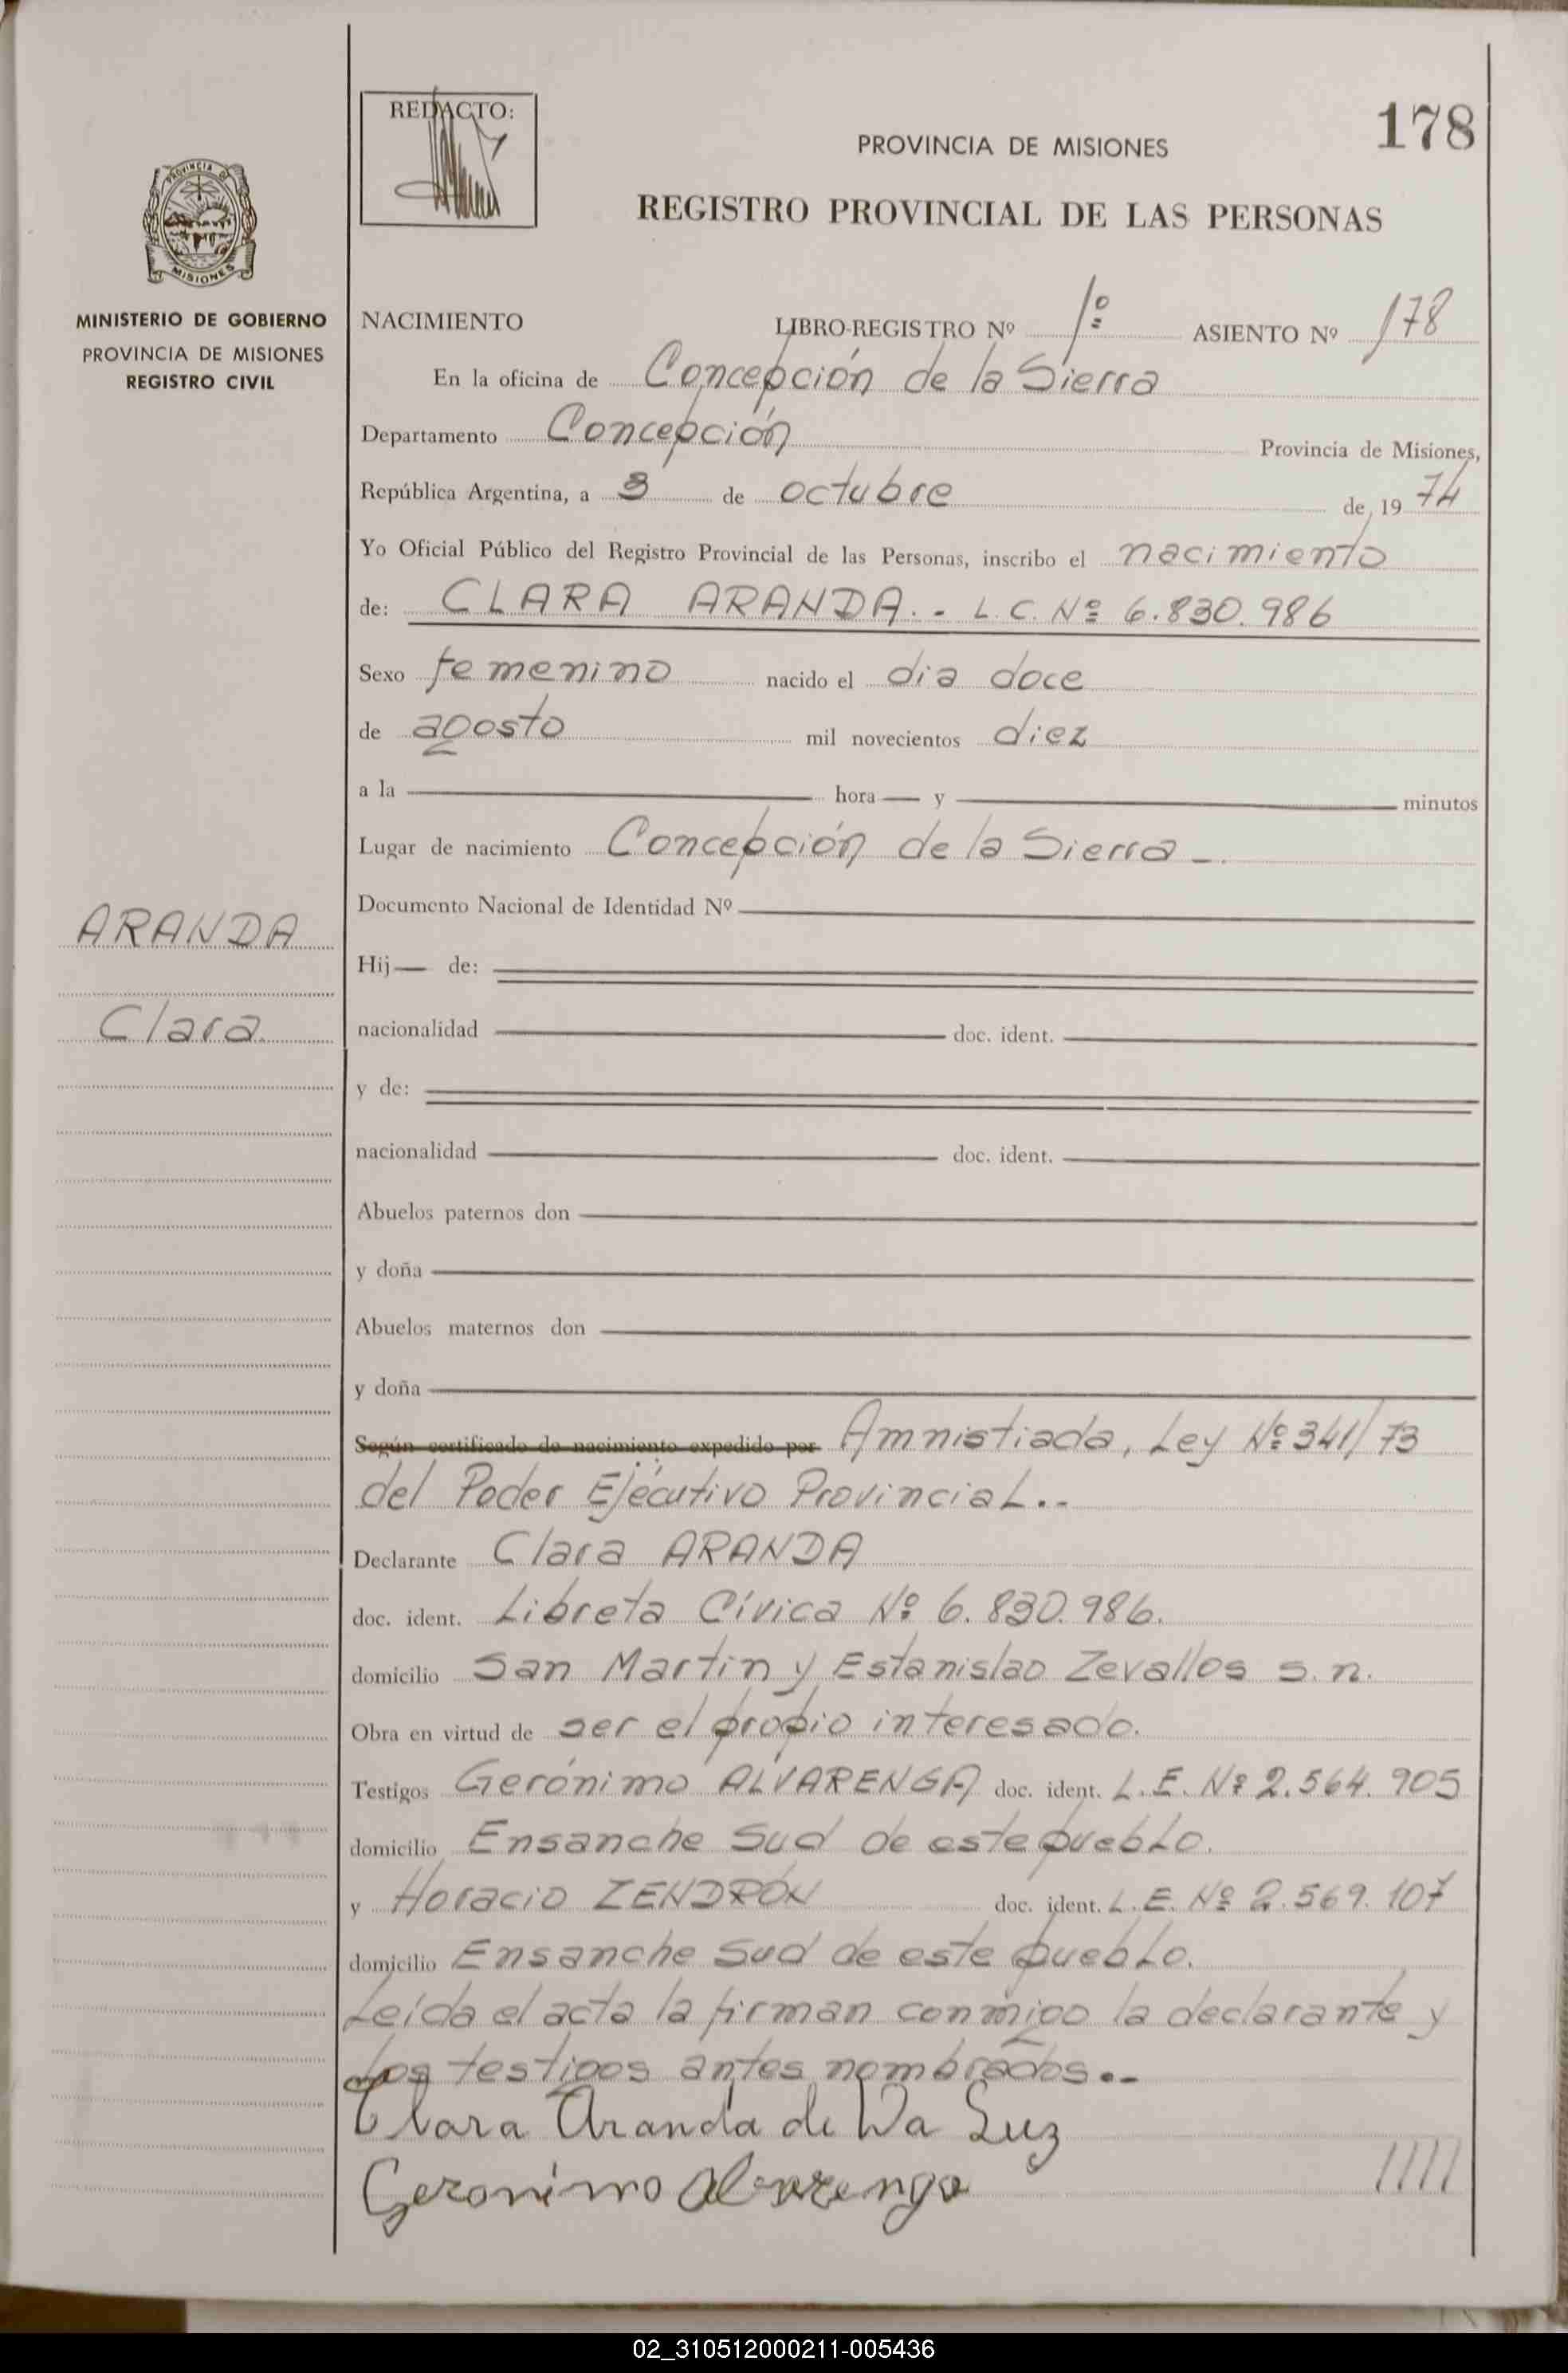 REDACTO:
178
PROVINCIA DE MISIONES
REGISTRO PROVINCIAL DE LAS PERSONAS
PROVINCIA DE
MISIONES
MINISTERIO DE GOBIERNO
PROVINCIA DE MISIONES
REGISTRO CIVIL
NACIMIENTO LIBRO-REGISTRO Nº 1º ASIENTO Nº 178
En la oficina de Concepción de la Sierra
Departamento Concepción Provincia de Misiones,
República Argentina, a 3 de octubre de 19 74
Yo Oficial Público del Registro Provincial de las Personas, inscribo el nacimiento
de: CLARA ARANDA.- L.C. Nº 6.830.986
Sexo femenino nacido el dia doce
de agosto mil novecientos diez
a la hora y minutos
Lugar de nacimiento Concepción de la Sierra-.
Documento Nacional de Identidad Nº
ARANDA
Hij de:
Clara.
nacionalidad doc. ident.
y de:
nacionalidad doc. ident.
Abuelos paternos don
y doña
Abuelos maternos don
y doña
Según certificado de nacimiento expedido por Amnistiada, Ley Nº 341/73
del Poder Ejecutivo Provincial..-
Declarante Clara ARANDA
doc. ident. Libreta Cívica Nº 6.830.986.
domicilio San Martin y Estanislao Zevallos s.n.
Obra en virtud de ser el propio interesado.
Testigos Gerónimo ALVARENGA doc. ident. L.E. Nº 2.564.905
domicilio Ensanche Sud de este pueblo.
y Horacio ZENDRÓN doc. ident. L.E. Nº 2.569.107
domicilio Ensanche Sud de este pueblo.
Leída el acta la firman conmigo la declarante y
los testigos antes nombrados.-
Clara Aranda de Da Luz
Geronimo Alvarenga
////
02_310512000211-005436